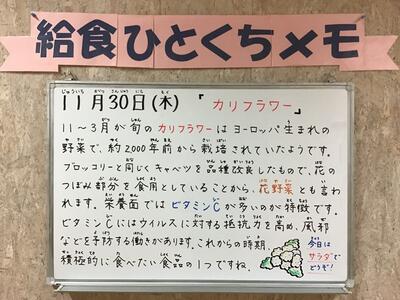 給食ひとくちメモ
11月30日(木) 「カリフラワー」
11～3月が旬のカリフラワーはヨーロッパ生まれの
野菜で、約2,000年前から栽培されていたようです。
ブロッコリーと同じくキャベツを品種改良したもので、花の
つぼみ部分を食用としていることから、花野菜とも言わ
れます。栄養面ではビタミンCが多いのが特徴です。
ビタミンCにはウイルスに対する抵抗力を高め、風邪
などを予防する働きがあります。これからの時期、
積極的に食べたい食品の1つですね。
今日は
サラダで
どうぞ!